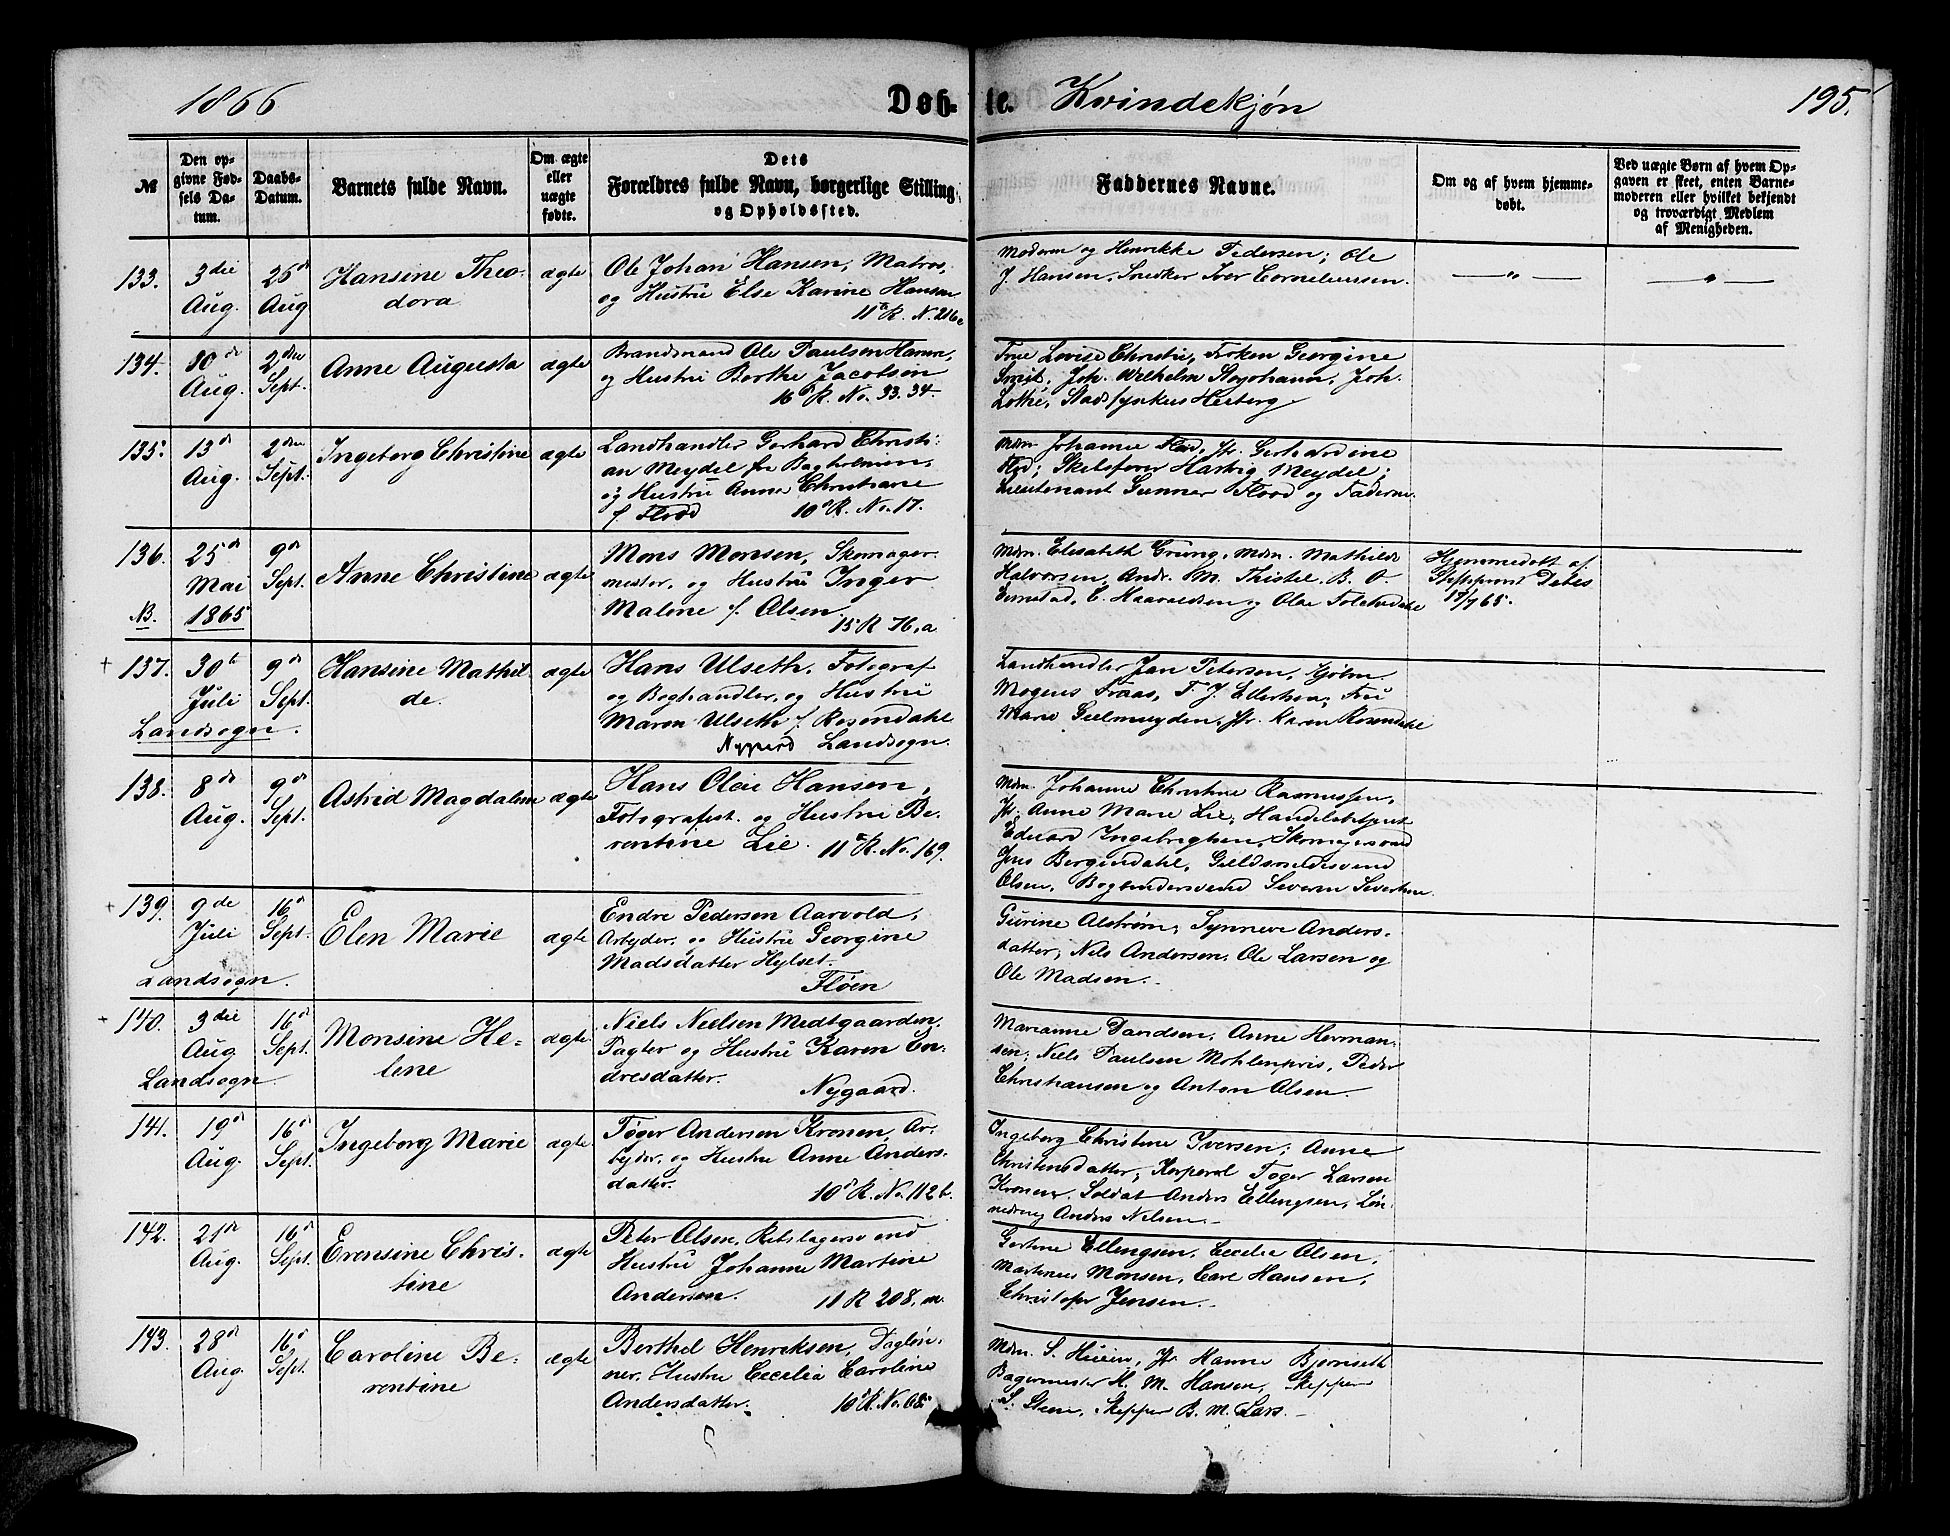 1866
Døb-
te. Kvindekjøn
195.
№
Den op-
givne Fød-
sels Da-
tum.
Daabs-
Datum.
Barnets fulde Navn.
Om ægte
eller
uægte
fødte.
Dets
Forældres fulde Navn, borgerlige Stilling
og Opholdssted.
Faddernes Navne.
Om og af hvem hjemme-
døbt.
Ved uægte Børn af hvem Op-
gaven er skeet, enten Barne-
moderen eller hvilket bekjendt
og troværdigt Medlem
af Menigheden.
133.
3die
Aug.
26de
Aug
Hansine Theo-
dora
ægte
Ole Johan Hansen, Matros,
og Hustru Else Karine Hansen
11te R. N. 216c
Moderen og Henrikke Pedersen; Ole
J. Hansen, Snedker Iver Corneliussen.
134.
10de
Aug.
2den
Sept.
Anne Augusta
ægte
Brandmand Ole Paulsen
og Hustru Berthe Jacobsen
16de R. No. 33. 34.
Frue Lovise Christie, Frøken Georgine
Smit, Joh. Wilhelm Joh.
Lothe,
135.
13de
Aug.
2den
Sept.
Ingeborg Christine
ægte
Landhandler Gerhard Christi-
an Meydel fra Bagholmen,
og Hustru Anna Christiane
f. Flood 10de R. No. 17.
Mdm. Johanne Flood, Jfr. Gerhardine
Flod; Skibsfører Hartvig Meydel;
Lieutenant Gunner Flood og Faderen.
136.
NB.
25de
Mai
1865
9de
Sept.
Anne Christine
ægte
Mons Monsen, Skomager-
mester, og Hustru Inger
Malene f. Olsen.
15 R 76, a
Mdm. Elisabeth Grung, Mdm. Mathilde
Halvorsen, Andr. M. Thistel, B. O.
E. Haavaldsen og Ole
Hjemmedøbt af
Stiftsprovst Debes
17/7 65.
+ 137.
30te
Juli
Landsogn.
9de
Sept.
Hansine Mathil-
de.
ægte
Hans Ulseth, Fotograf
og Boghandler, og Hustru
Maren Ulseth f. Rosendahl
Nygaard Landsogn.
Landhandler Jan Petersen, Kjøbm.
Mogens Fraas, F. J. Ellerhusen, Fru
Marie Gielmuyden, Jfr. Karen Rosendahl
138.
8de
Aug.
9de
Sept.
Astrid Magdalene
ægte
Hans Olai Hansen,
Fotografist. og Hustru Be-
rentine Lie. 11te R. No. 169.
Mdm. Johanne Christine Rasmussen,
Jfr. Anne Marie Lie, Handelsbetjent
Eduard Ingebrigtsen, Skomagersvend
Jens Bergendahl, Guldsmedsvend
Olsen, Bogbindersvend Severin Sivertsen.
+ 139.
9de
Juli
Landsogn.
16de
Sept.
Elen Marie
ægte
Endre Pedersen Aarvold,
Arbeider, og Hustru Georgine
Madsdatter Hylset.
Fløen
Gurine Alstrøm, Synneve Anders-
datter, Nils Andersen, Ole Larsen og
Ole Madsen.
+ 140.
3die
Aug
Landsogn.
16de
Sept.
Monsine He-
lene
ægte
Niels Nielsen Midtgaarden,
Pagter og Hustru Karen En-
dresdatter.
Nygaard.
Marianne Davidsen, Anne Herman-
sen, Niels Paulsen Møhlenpris, Peder
Christiansen og Anton Olsen.
141.
19de
Aug.
16de
Sept.
Ingeborg Marie
ægte
Tøger Andersen Kronen, Ar-
beider, og Hustru Anne Anders-
datter.
10de R. No. 112b.
Ingeborg Christine Iversen, Anne
Christensdatter, Korporal Tøger Larsen
Kronen. Soldat Anders Ellingsen,
Anders Nilsen.
142.
21de
Aug.
16de
Sept.
Erensine Chris-
tine
ægte
Peter Olsen, Rebslagersvend
Hustru Johanne Martine
Andersen. 11 R 208, m.
Gertine Ellingsen, Cecilie Olsen,
Martinus Monsen, Carl Hansen,
Christofer Jensen.
143.
28de
Aug
16de
Sept.
Caroline Be-
rentine
ægte
Berthel Henriksen, Dagløn-
ner, Hustru Cecilia Caroline
Andersdatter. 10de R. No. 68.
Mdm. S. Jfr. Hanne Bjørnseth
Bagermester H. M. Hansen, Skipper
S. Steen, Skipper B. M. Lars.